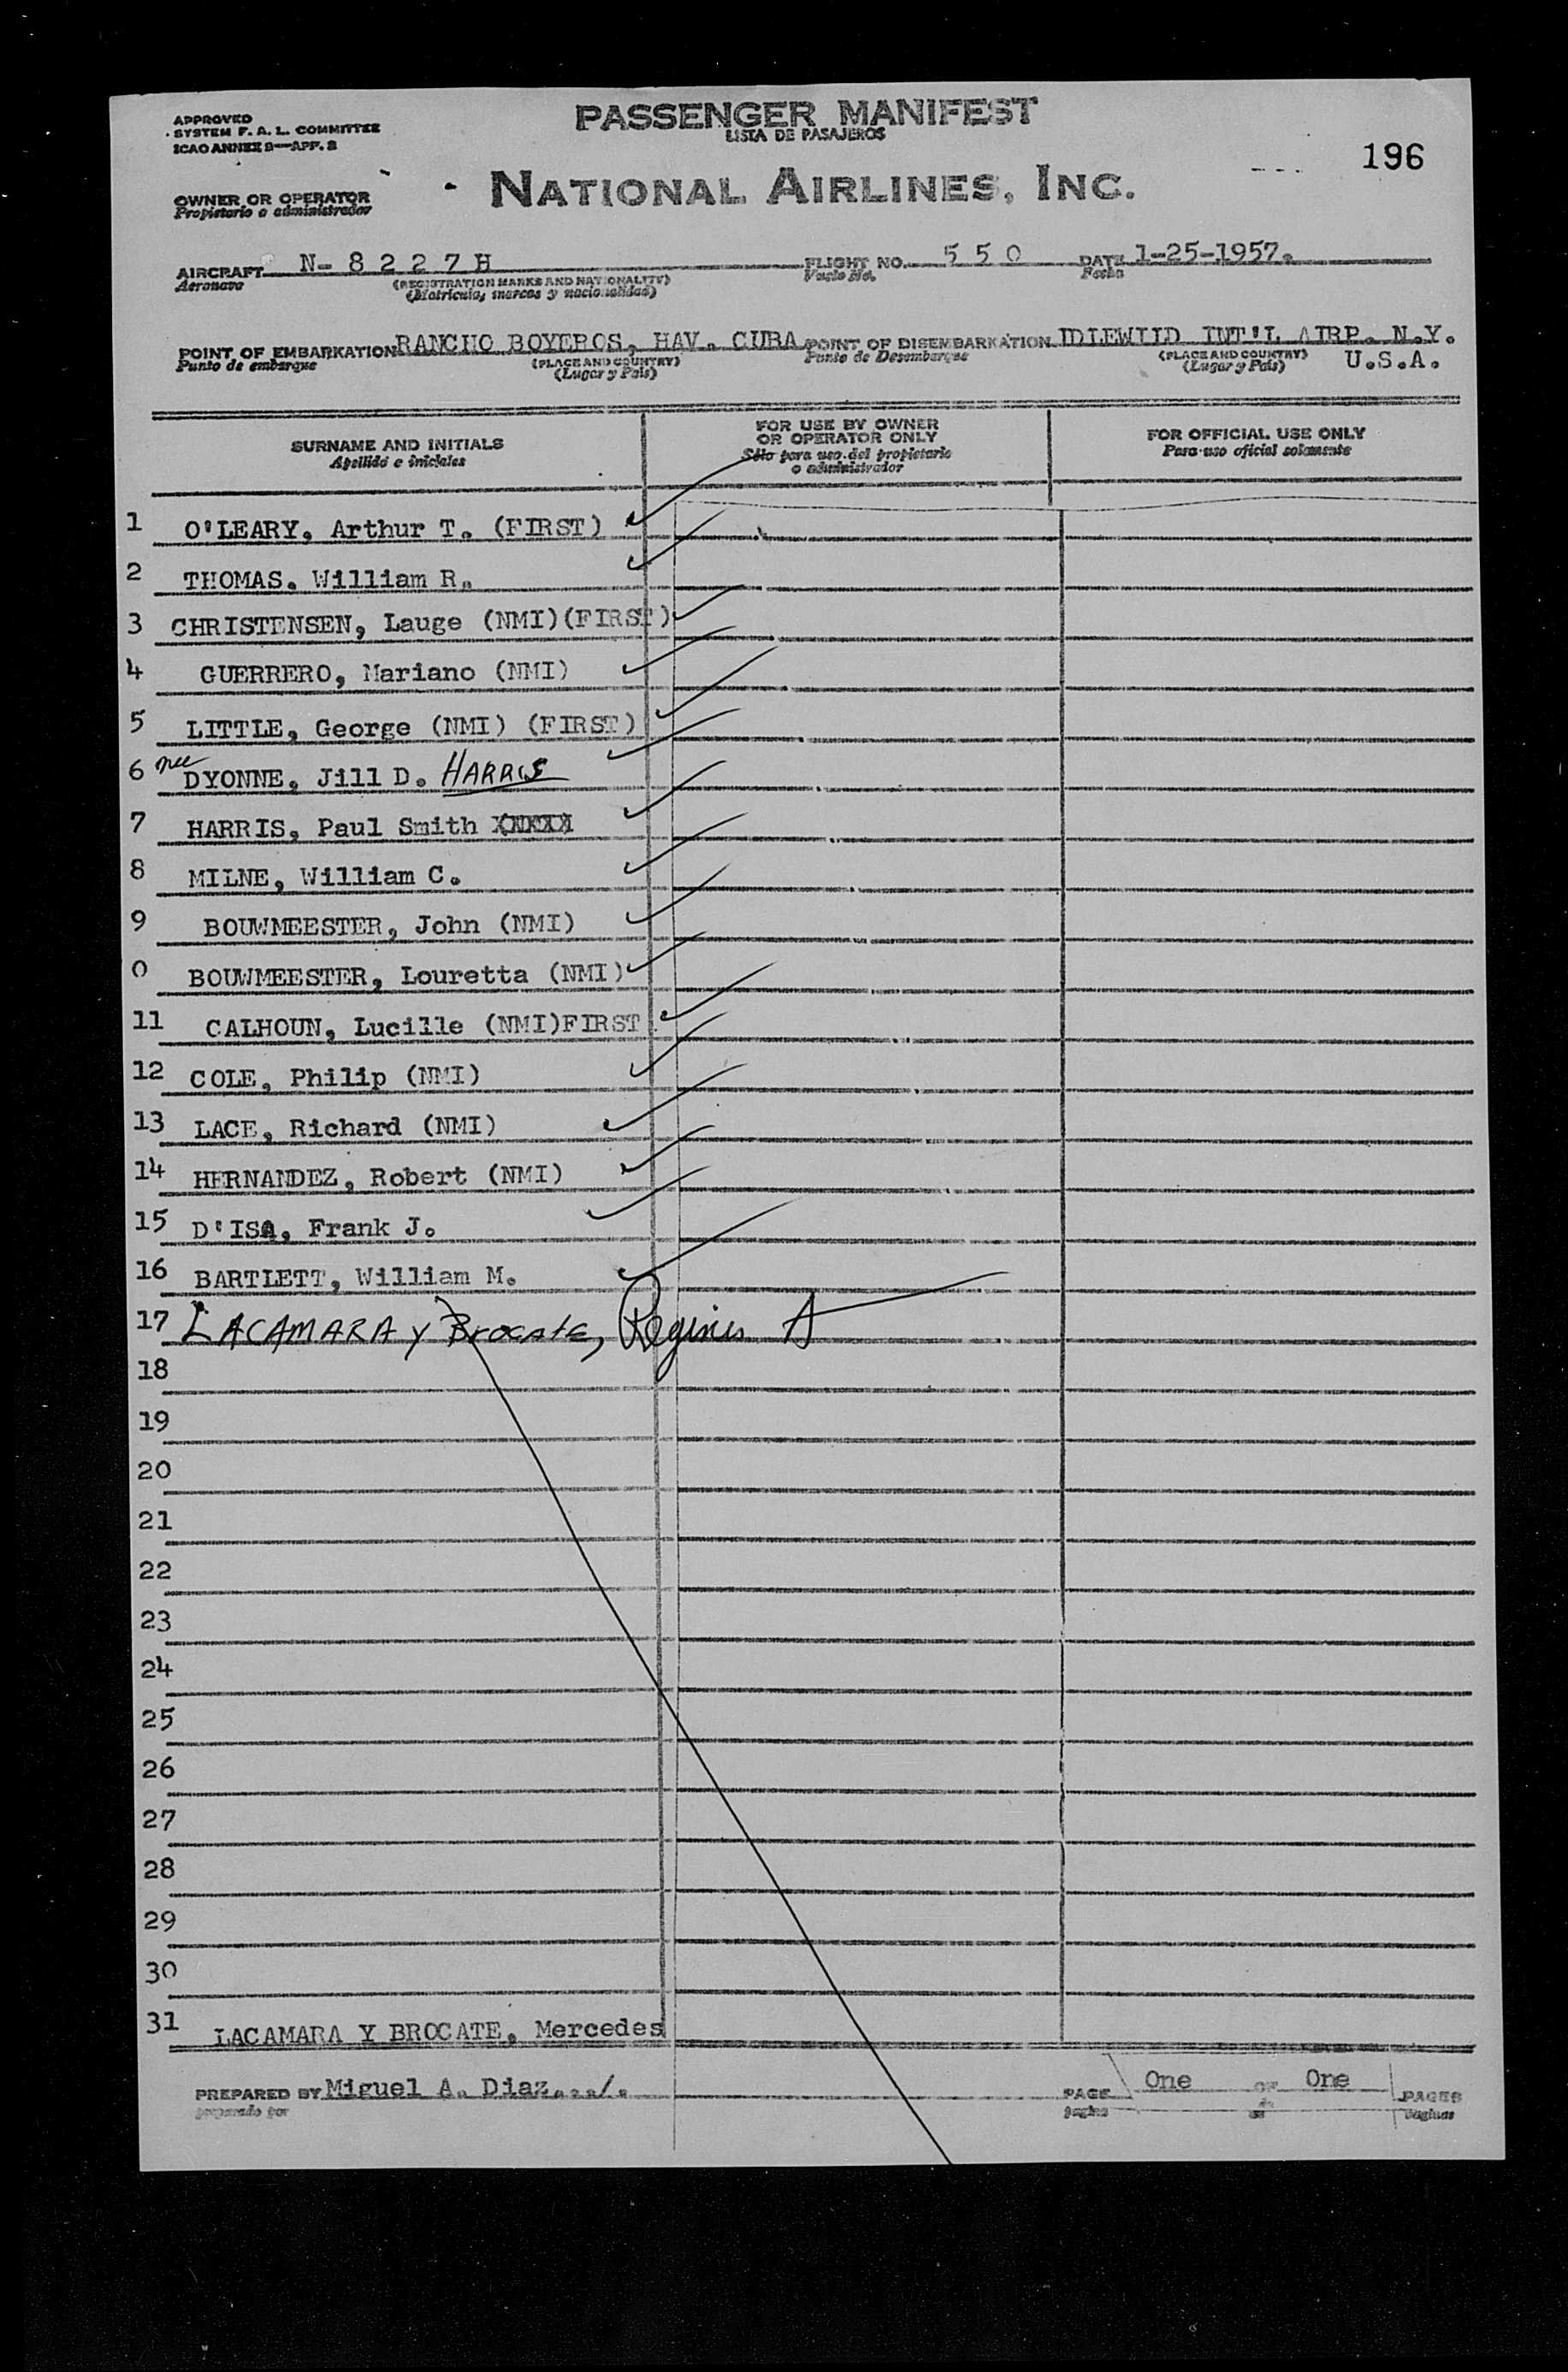 APPROVED
SYSTEM F. A. L. COMMITTEE
ICAO ANNEX 9—APP. 2
PASSENGER MANIFEST
LISTA DE PASAJEROS
196
OWNER OR OPERATOR
Propietario o administrador
NATIONAL AIRLINES, INC.
AIRCRAFT N- 8 2 2 7 H FLIGHT NO. 5 5 0 DATE 1-25-1957.
Aeronave (REGISTRATION MARKS AND NATIONALITY) Vuelo No. Fecha
(Matricula, marcas y nacionalidad)
POINT OF EMBARKATION RANCHO BOYEROS, HAV. CUBA POINT OF DISEMBARKATION IDLEWILD INT'L AIRP. N.Y.
Punto de embarque (PLACE AND COUNTRY) Punto de Desembarque (PLACE AND COUNTRY) U.S.A.
(Lugar y Pais) (Lugar y Pais)
SURNAME AND INITIALS FOR USE BY OWNER OR OPERATOR ONLY FOR OFFICIAL USE ONLY
Apellido e iniciales Sólo para uso del propietario o administrador Para uso oficial solamente
1 O'LEARY, Arthur T. (FIRST)
2 THOMAS. William R.
3 CHRISTENSEN, Lauge (NMI)(FIRST)
4 GUERRERO, Mariano (NMI)
5 LITTLE, George (NMI) (FIRST)
6 nee DYONNE, Jill D. HARRIS
7 HARRIS, Paul Smith
8 MILNE, William C.
9 BOUWMEESTER, John (NMI)
0 BOUWMEESTER, Louretta (NMI)
11 CALHOUN, Lucille (NMI)FIRST
12 COLE, Philip (NMI)
13 LACE, Richard (NMI)
14 HERNANDEZ, Robert (NMI)
15 D'ISA, Frank J.
16 BARTLETT, William M.
17 LACAMARA y Brocate, A
18
19
20
21
22
23
24
25
26
27
28
29
30
31 LACAMARA Y BROCATE, Mercedes
PREPARED BY Miguel A. Diaz.../. PAGE One OF One PAGES
preparado por pagina de paginas